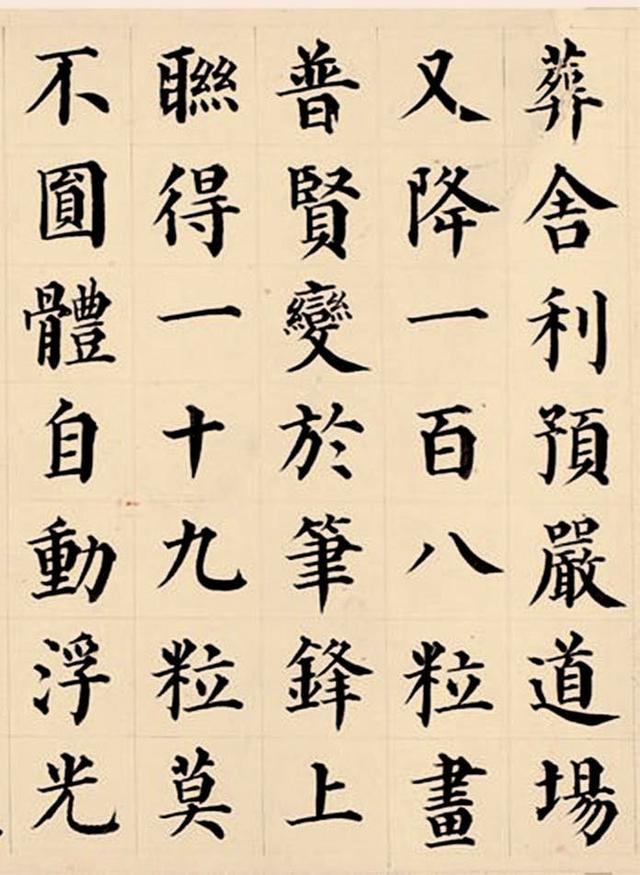 葬舍利預嚴道場
又降一百八粒畫
普賢變於筆鋒上
聮得一十九粒莫
不圎體自動浮光